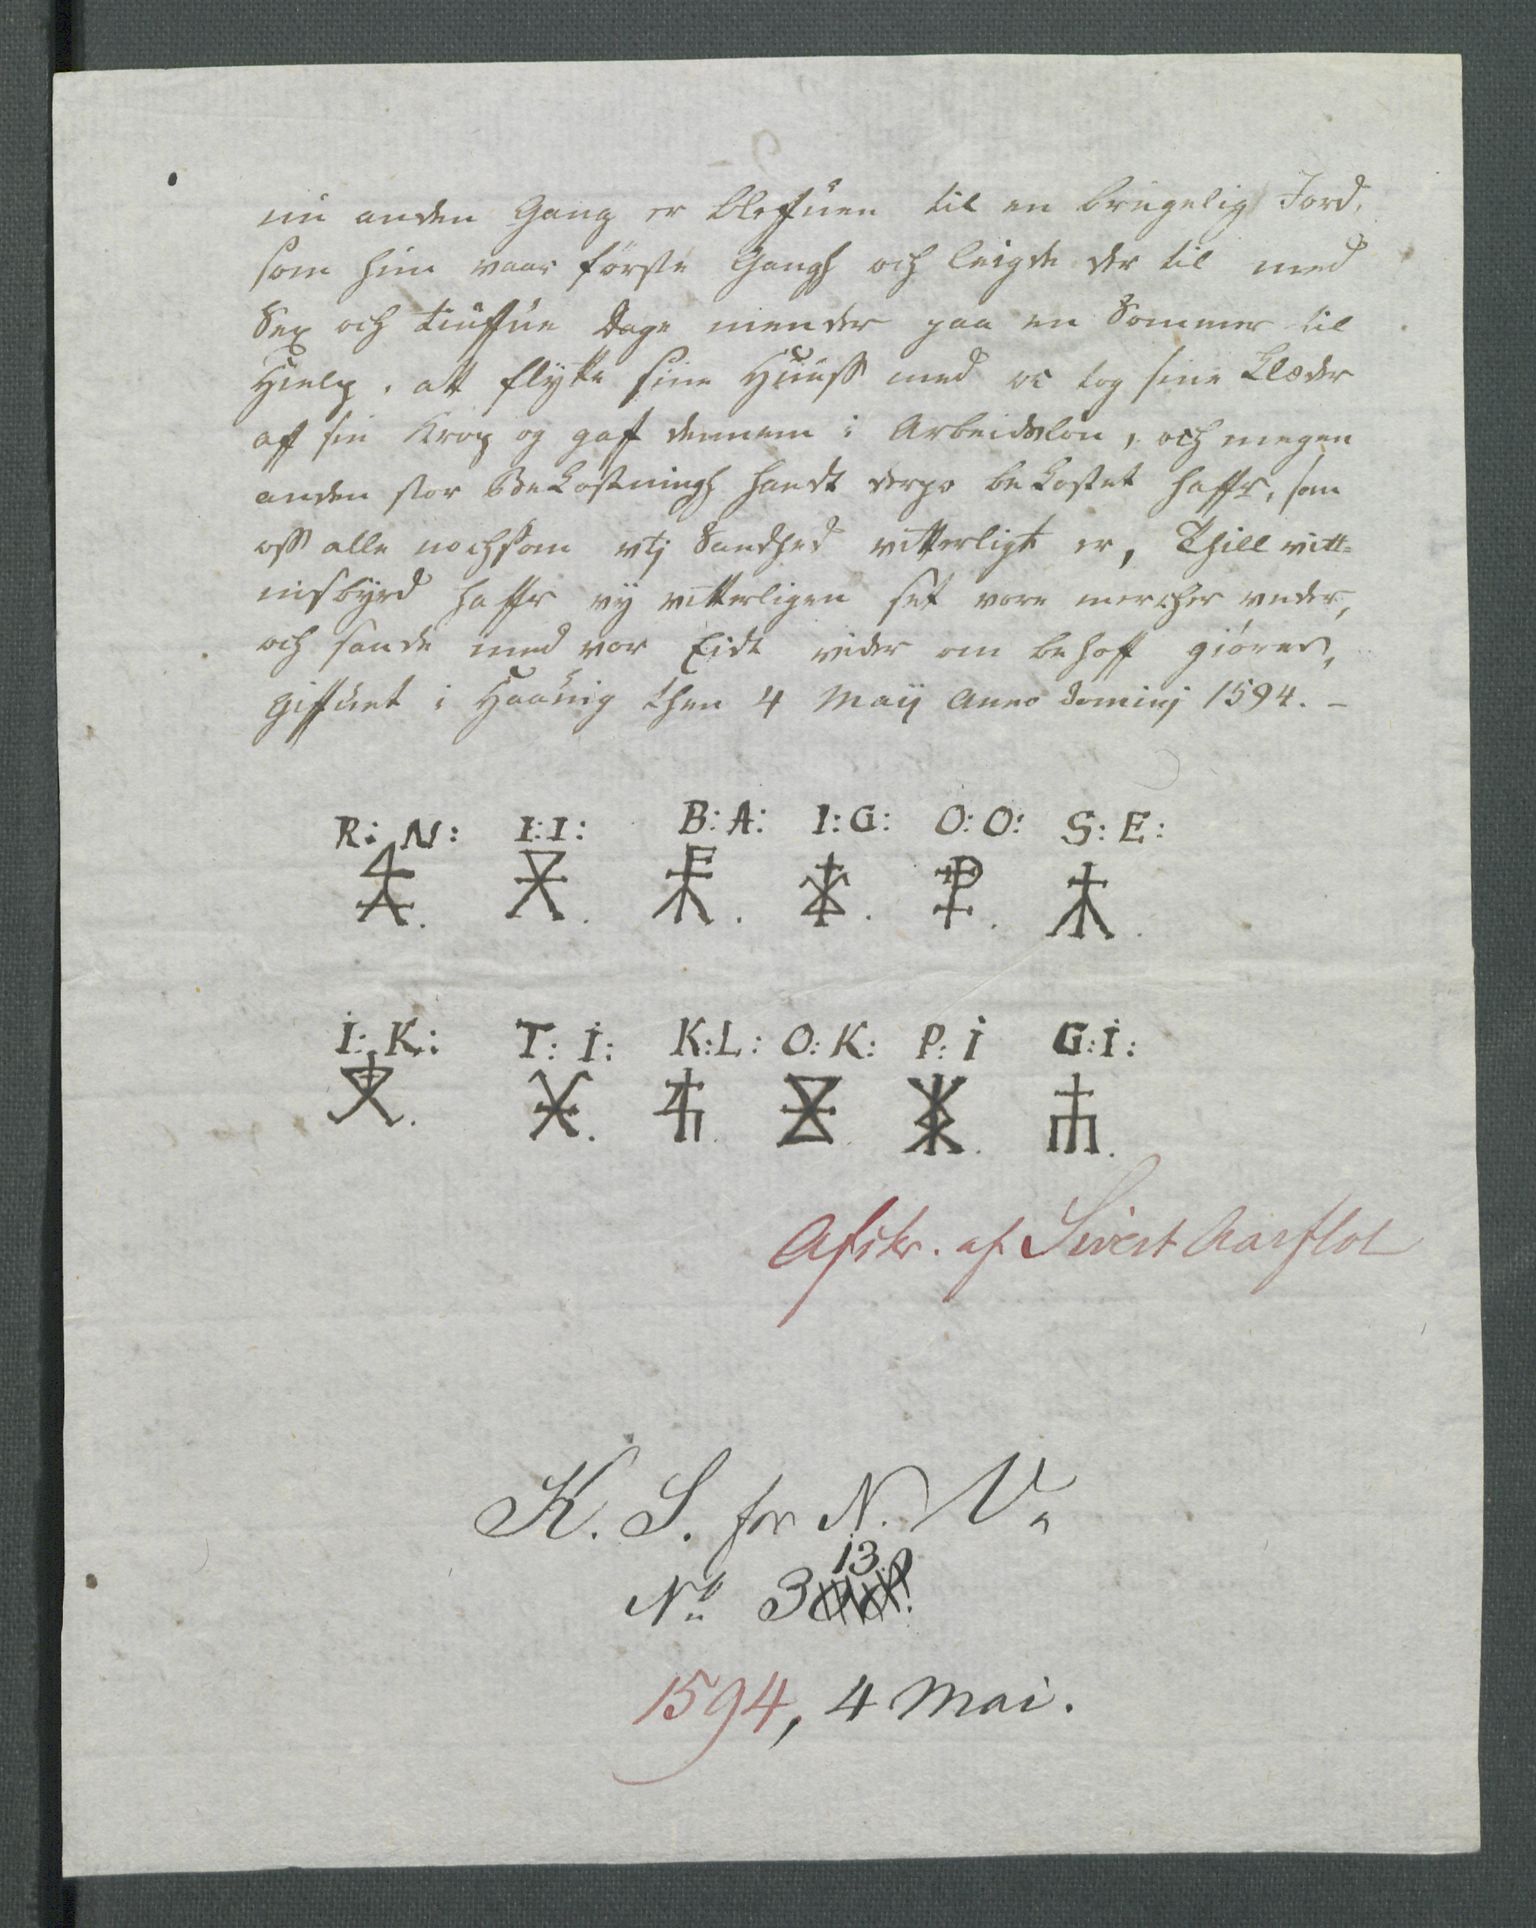 nu anden Gang er bleffuen til en brugelig Jord,
som hun vaar förste Gangh och leigde der til med
Sex och tiuffue Dage mender paa en Sommer til
Hielp, att flytte sine Huuss med oc tog sine Klæder
aff sin Krop og gaff dennem i Arbeidslön, och megen
anden stor Bekostningh handt derpo bekostet haffr, som
oss alle nochsom vtj Sandhed vitterligt er, Thill vitt=
nisbyrd haffr vÿ vitterligen set vore mercher vnder,
och sande med vor Eidt vider om behoff giöres,
Giffuet i Haauig then 4 Maij Anno Dominj 1594. –
R: N: I: I: B: A: I: G: O: O: S: E:
I: K: T: I: K: L: O: K: P: I G: I:
Afskr. af Sivert Aarflot
K. S. for N. V.
No 3 13.
1594, 4 Mai.